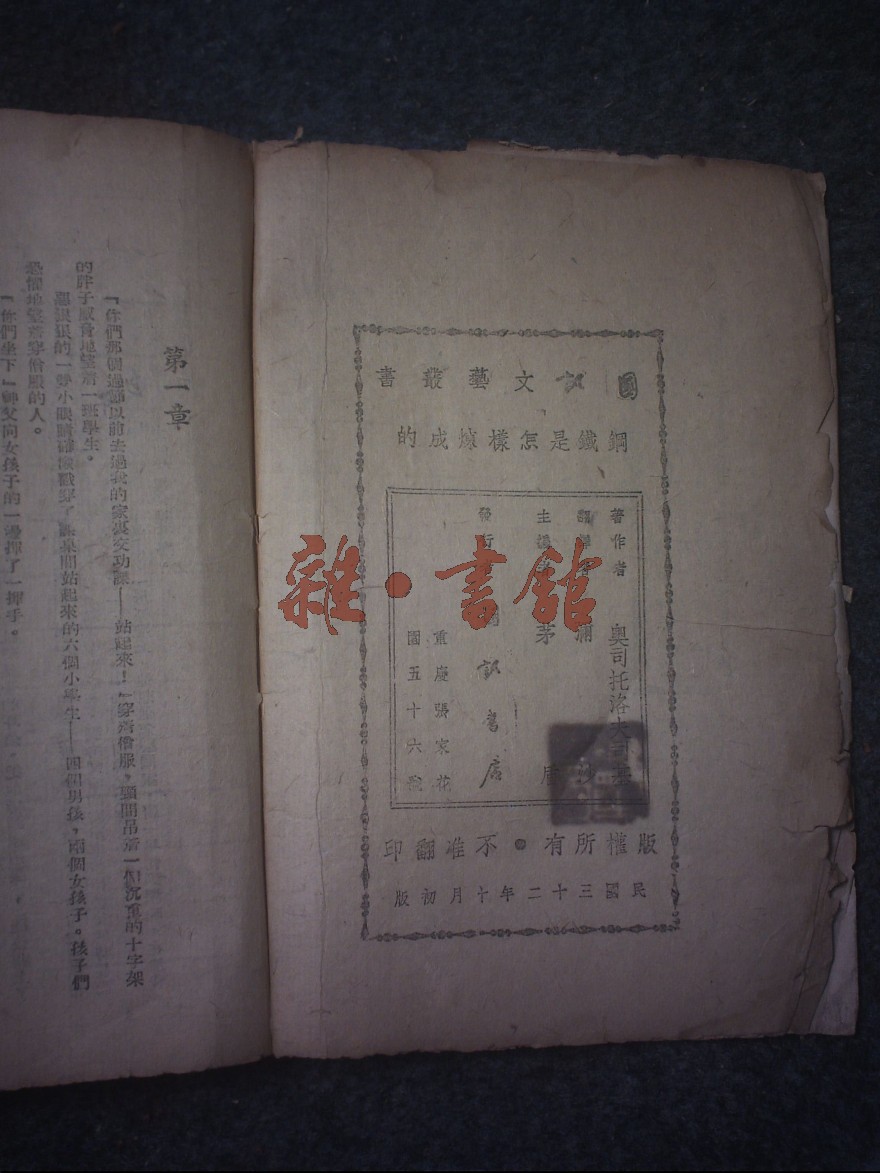 國訊文藝叢書
鋼鐵是怎樣煉成的
著作者 奧司托洛夫司基
翻譯者 彌
主編者 茅
發行者 國訊書店
重慶張家花
國五十六號
版權所有●不准翻印
民國三十二年十月初版
雜·書館
第一章
『你們那個過節以前去過我的家裏交功課——站起來!』穿着僧服,頸間吊着一個沉重的十字架
的胖子威脅地望着一班學生。
惡狠狠的一雙小眼睛像戳穿了課桌間站起來的六個小學生——四個男孩,兩個女孩子。孩子們
恐懼地望着穿僧服的人。
『你們坐下』神父向女孩子的一邊揮了一揮手。